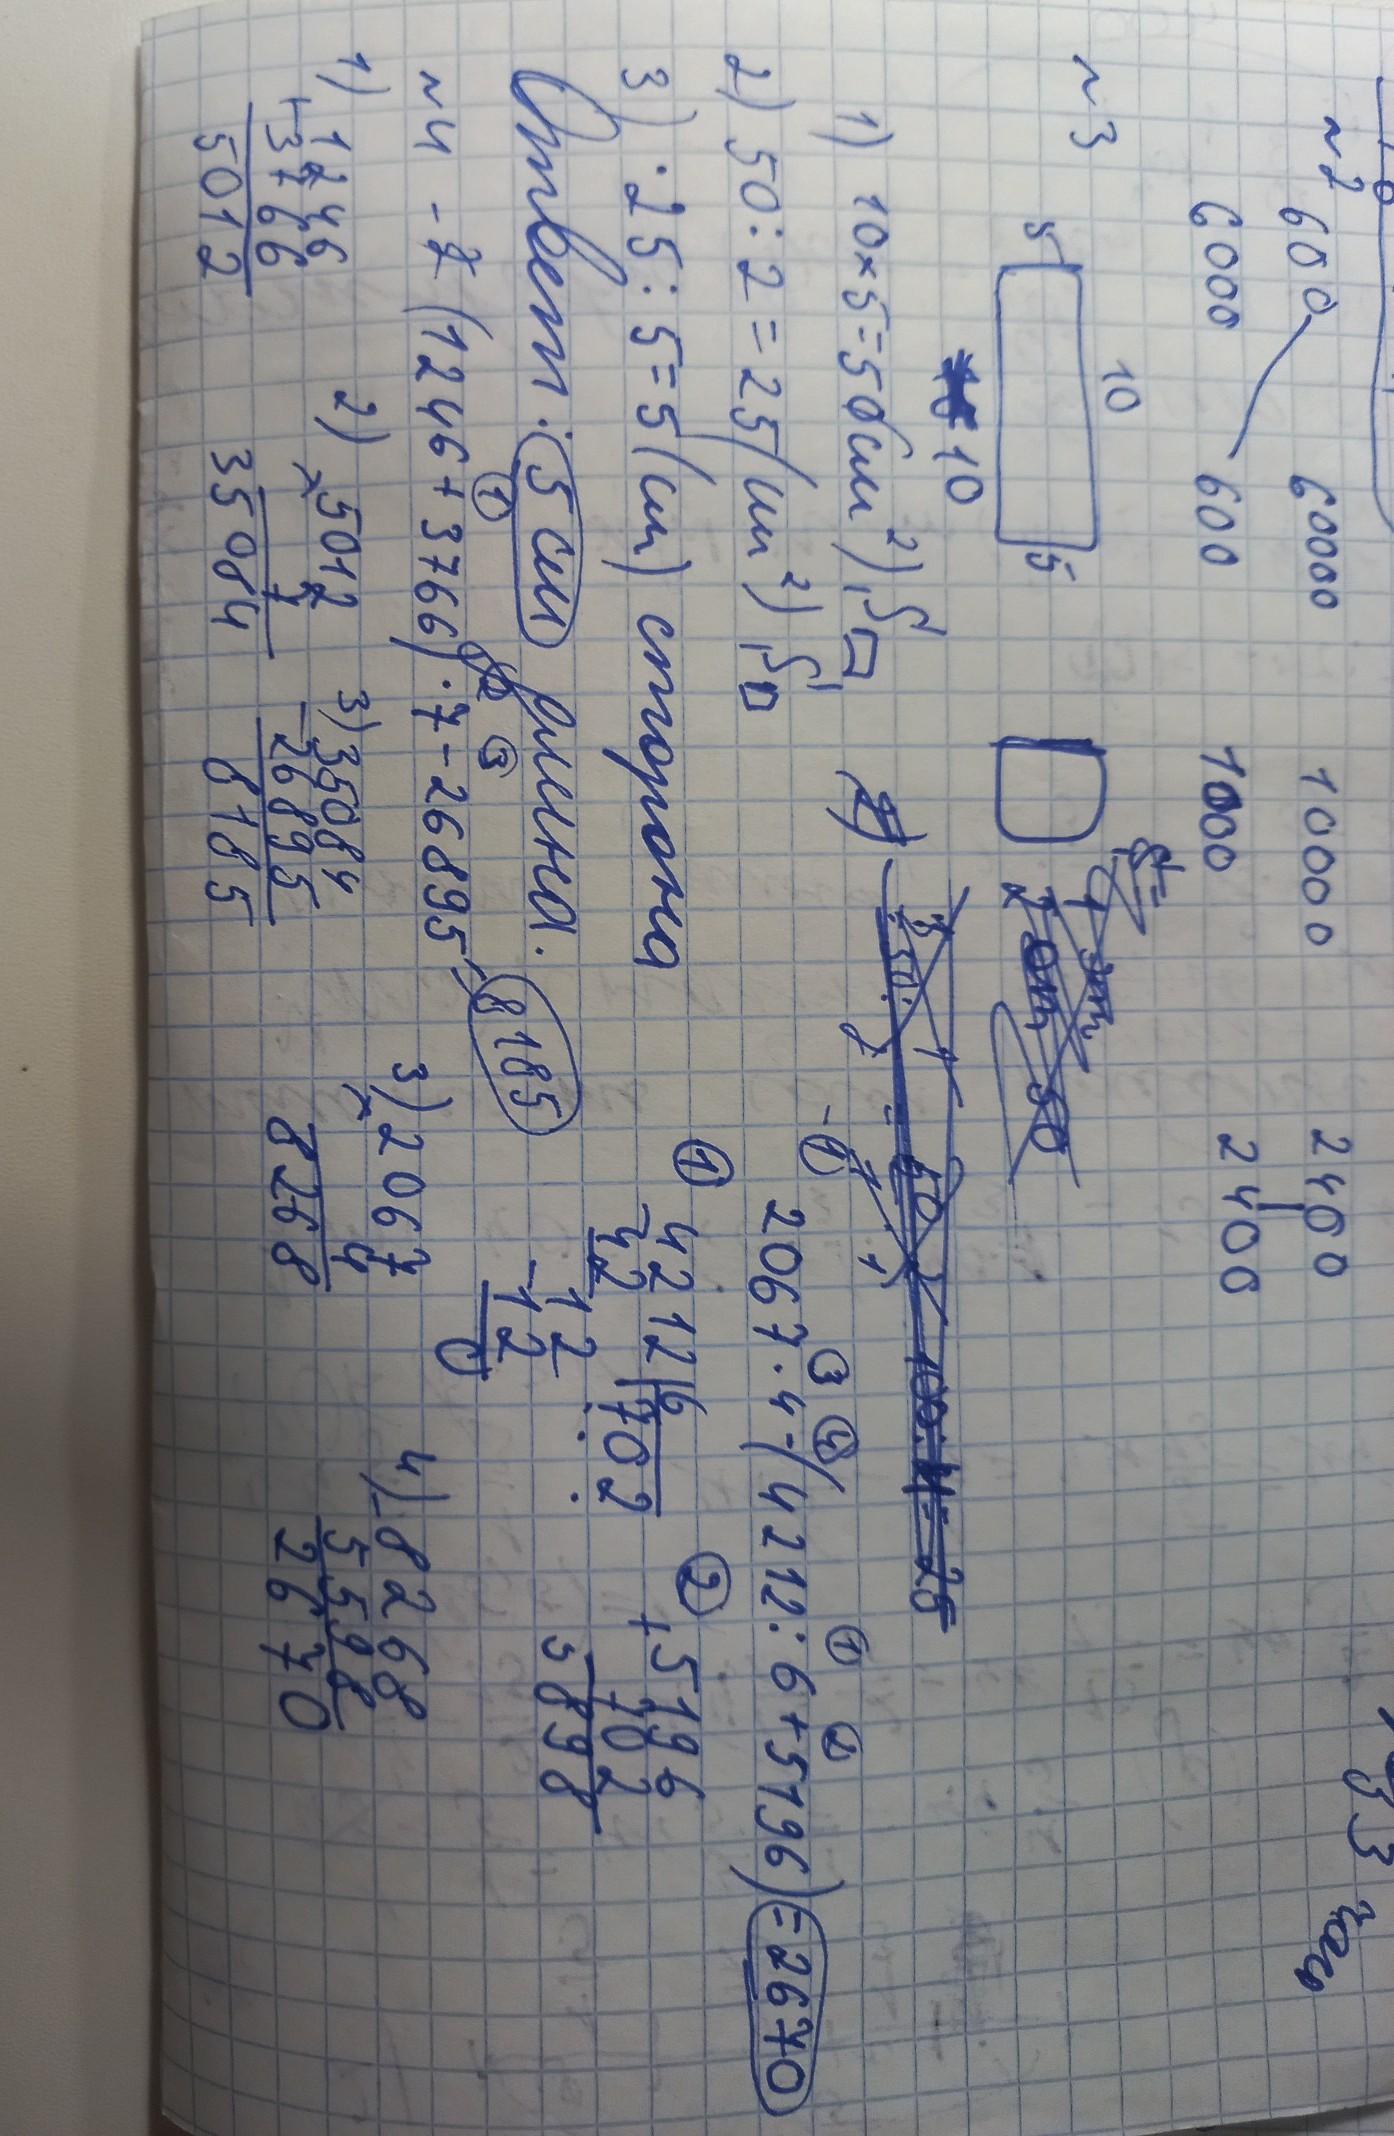 ~2 600 60000 10000 2400
6000 600 1000 2400
~3 5 10 5
10
1) 10×5=50(см²), S▭
2) 50:2=25(см²) S□
3) 25:5=5(см) сторона
Ответ: 5 см длина.
2067·4-(4212:6+5196)=2670
① ② ③ ④
① 4212|6
-42 702
-12
12
0
② +5196
702
5898
3) ×2067
4
8268
4) -8268
5598
2670
~4 - (1246+3766)·7-26895=8185
① ② ③
1) +1246
3766
5012
2) ×5012
7
35084
3) 35084
-26895
8185